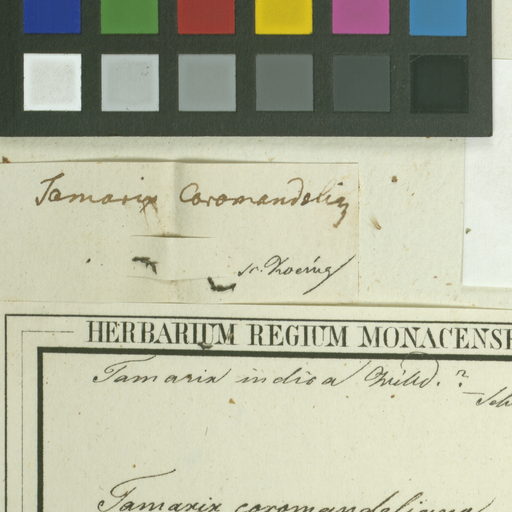 Tamarix Coromandeliz
HERBARIUM REGIUM MONACENSE
Tamarix indica Willd. ?
Tamarix coromandeliana